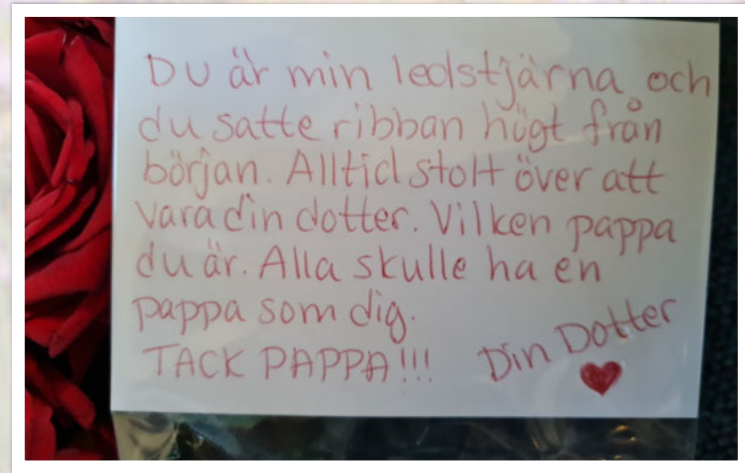 Du är min ledstjärna och
du satte ribban högt från
början. Alltid stolt över att
vara din dotter. Vilken pappa
du är. Alla skulle ha en
pappa som dig.
TACK PAPPA!!! Din Dotter